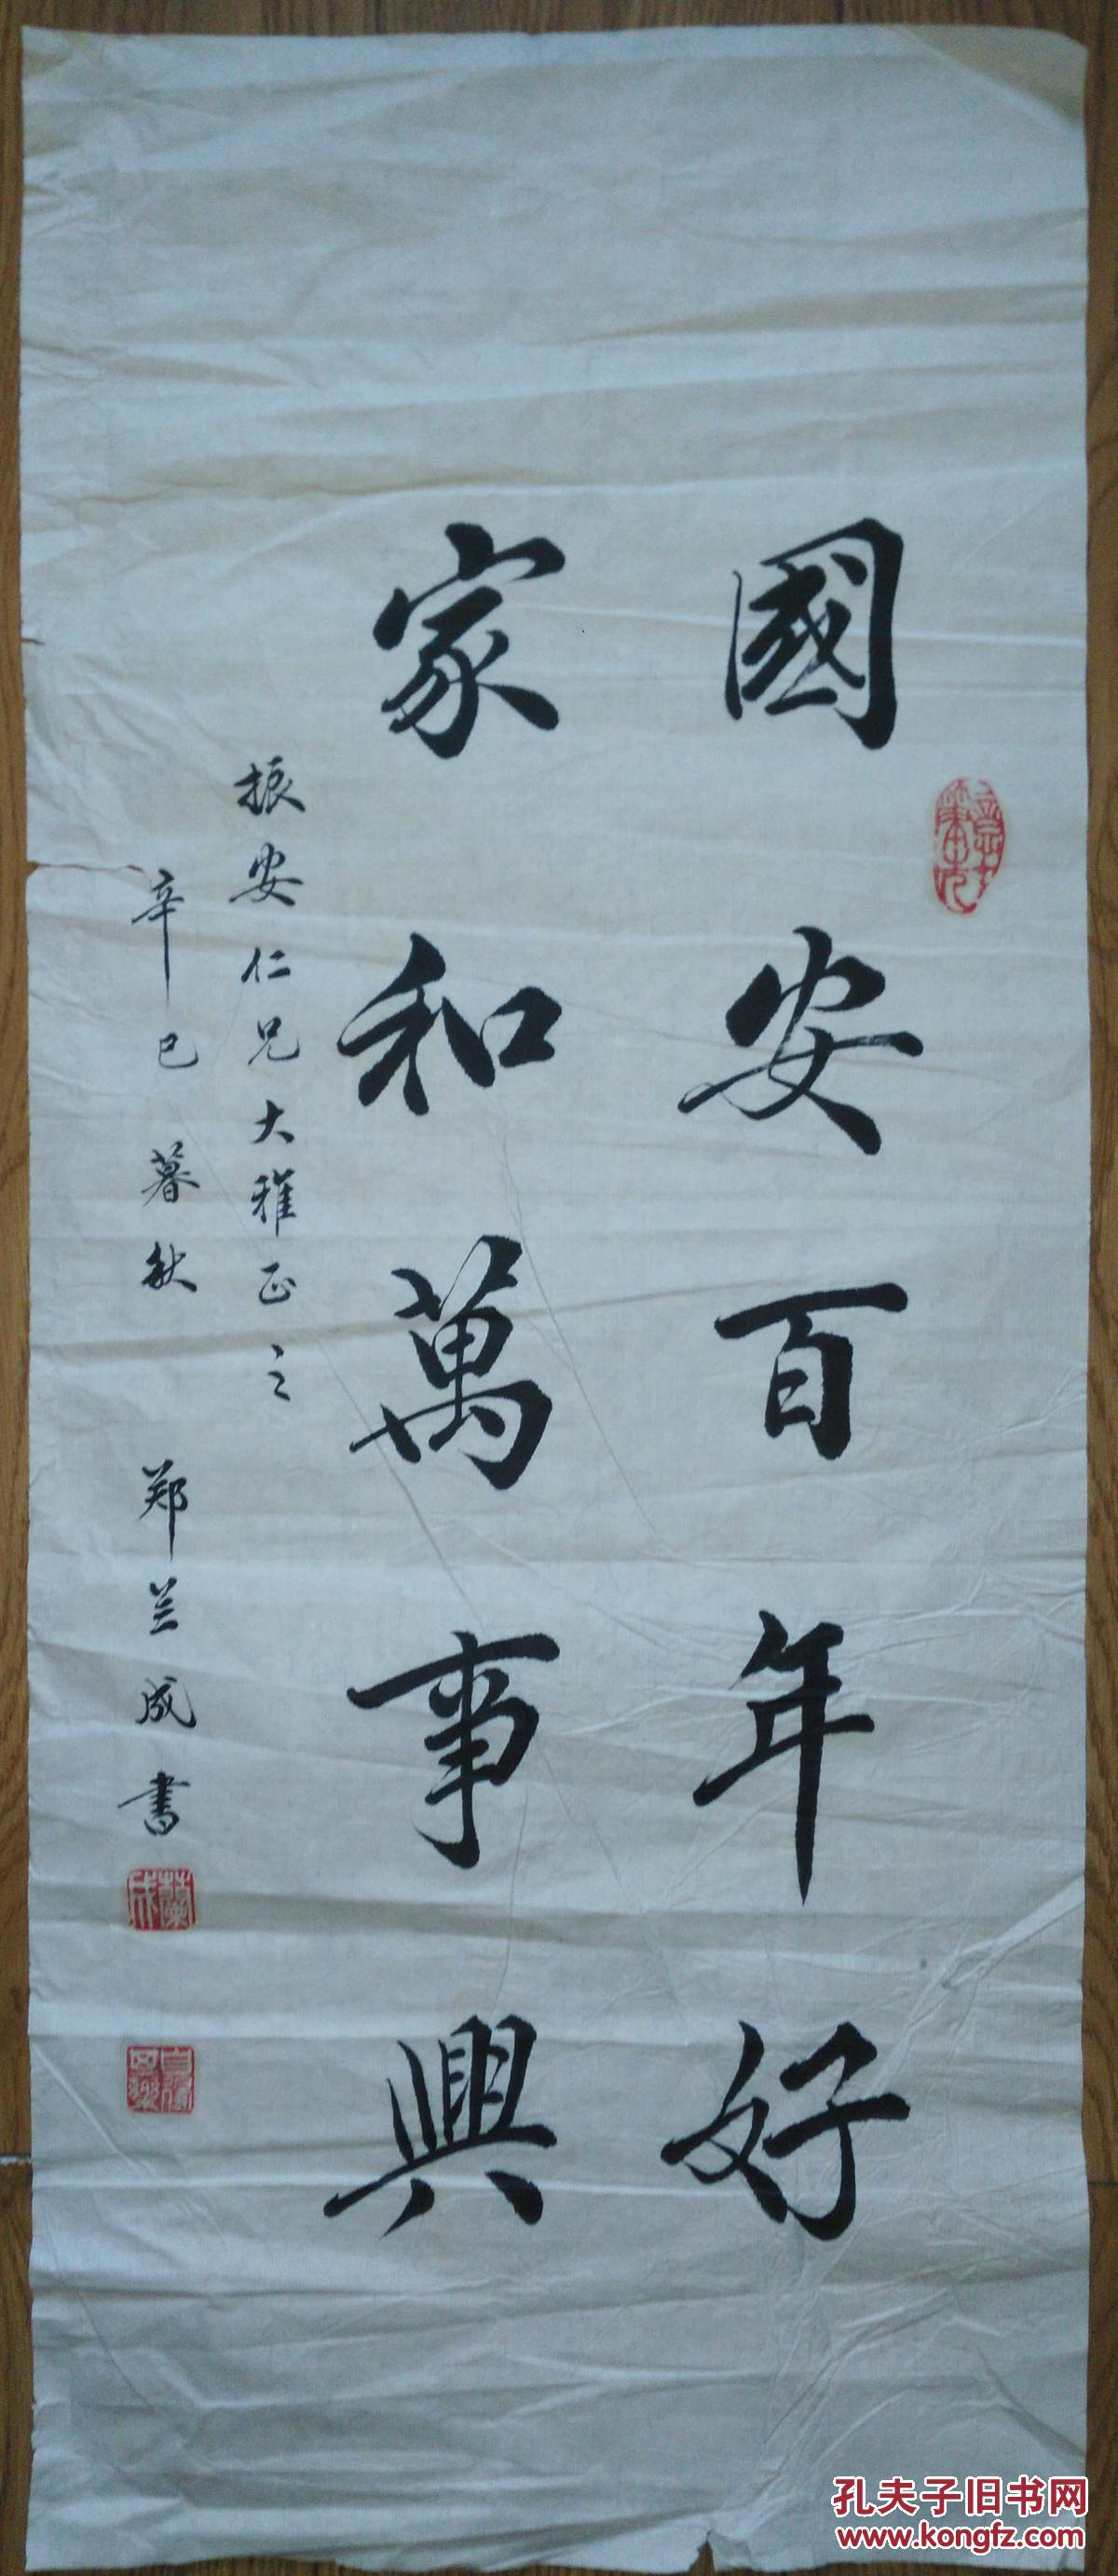 國安百年好
家和萬事興
振安仁兄大雅正之
辛巳暮秋 郑兰成書
蘭成
孔夫子旧书网
www.kongfz.com